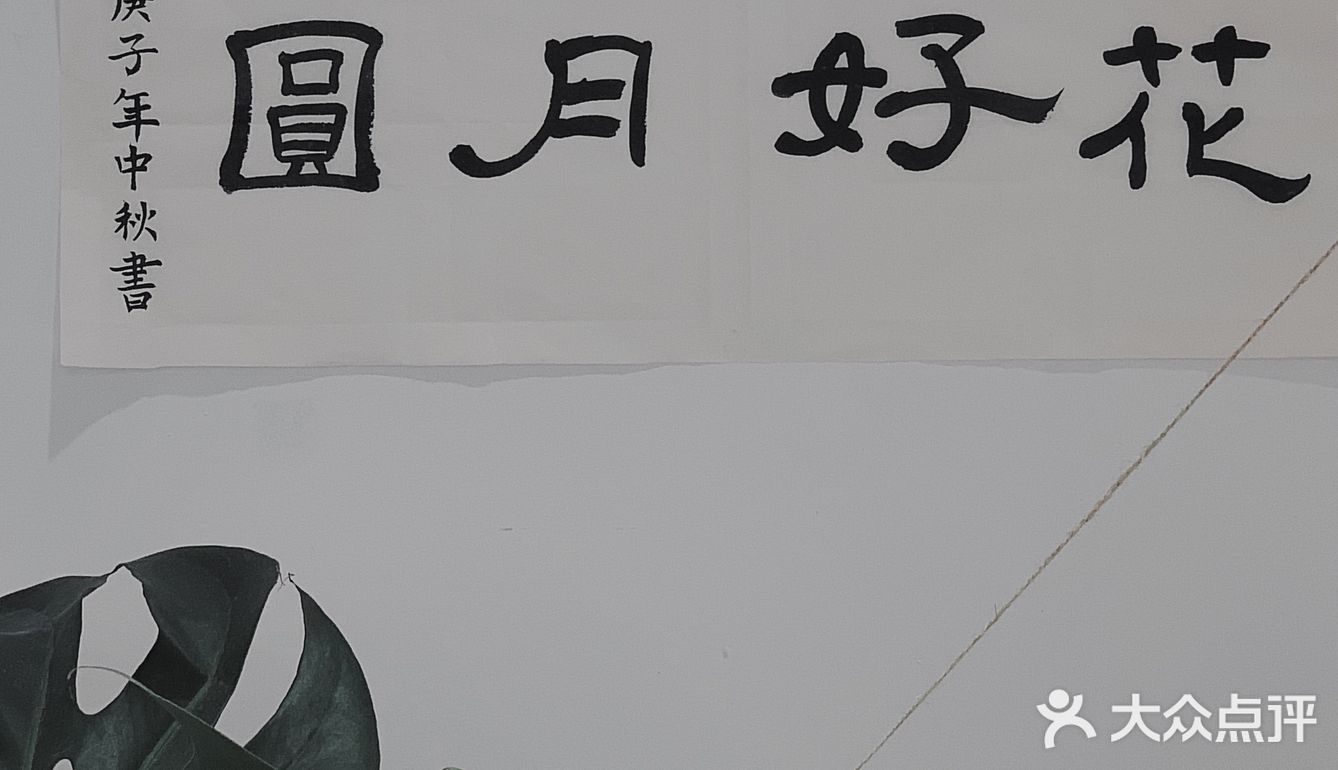 花好月圓
庚子年中秋書
大众点评